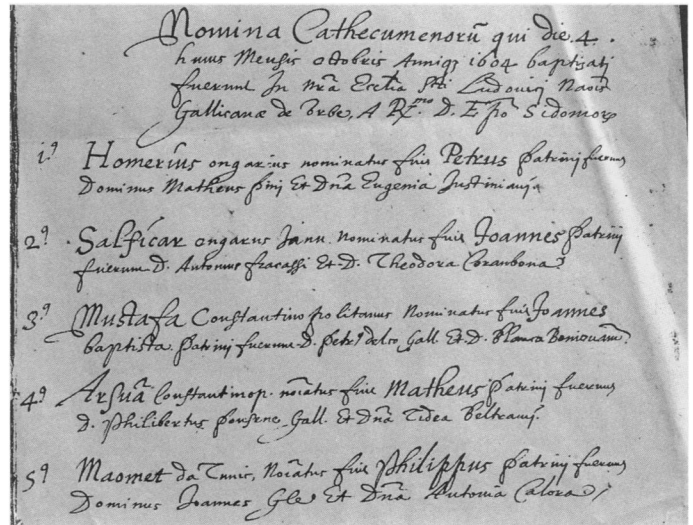 Nomina Cathecumenorũ qui die 4.
huius Mensis octobris Anniqz 1604 baptizatj
fuerunt In nrã Ecclia Sti Ludovicj Naoīs
Gallicanæ de Urbe, A Rmo D. Epõ Sidomon
1º Homerius ongarius nominatus fuit Petrus Patrinj fuerunt
Dominus Matheus Et Dña Eugenia Justinianj
2º Salficar ongarus Janu. nominatus fuit Joannes Patrinj
fuerunt D. Antonius fracassi Et D. Theodora
3º Mustafa Constantinopolitanus Nominatus fuit Joannes
baptista Patrinj fuerunt D. Petrus Gall. Et D. Blanca
4º Arsuã Constantinop. noĩatus fuit Matheus Patrinj fuerunt
D. Philibertus Gall. Et Dña Tidea Beltramj.
5º Maomet da Tunis, Noĩatus fuit Philippus Patrinj fuerunt
Dominus Joannes Gle Et Dña Antonia Calora